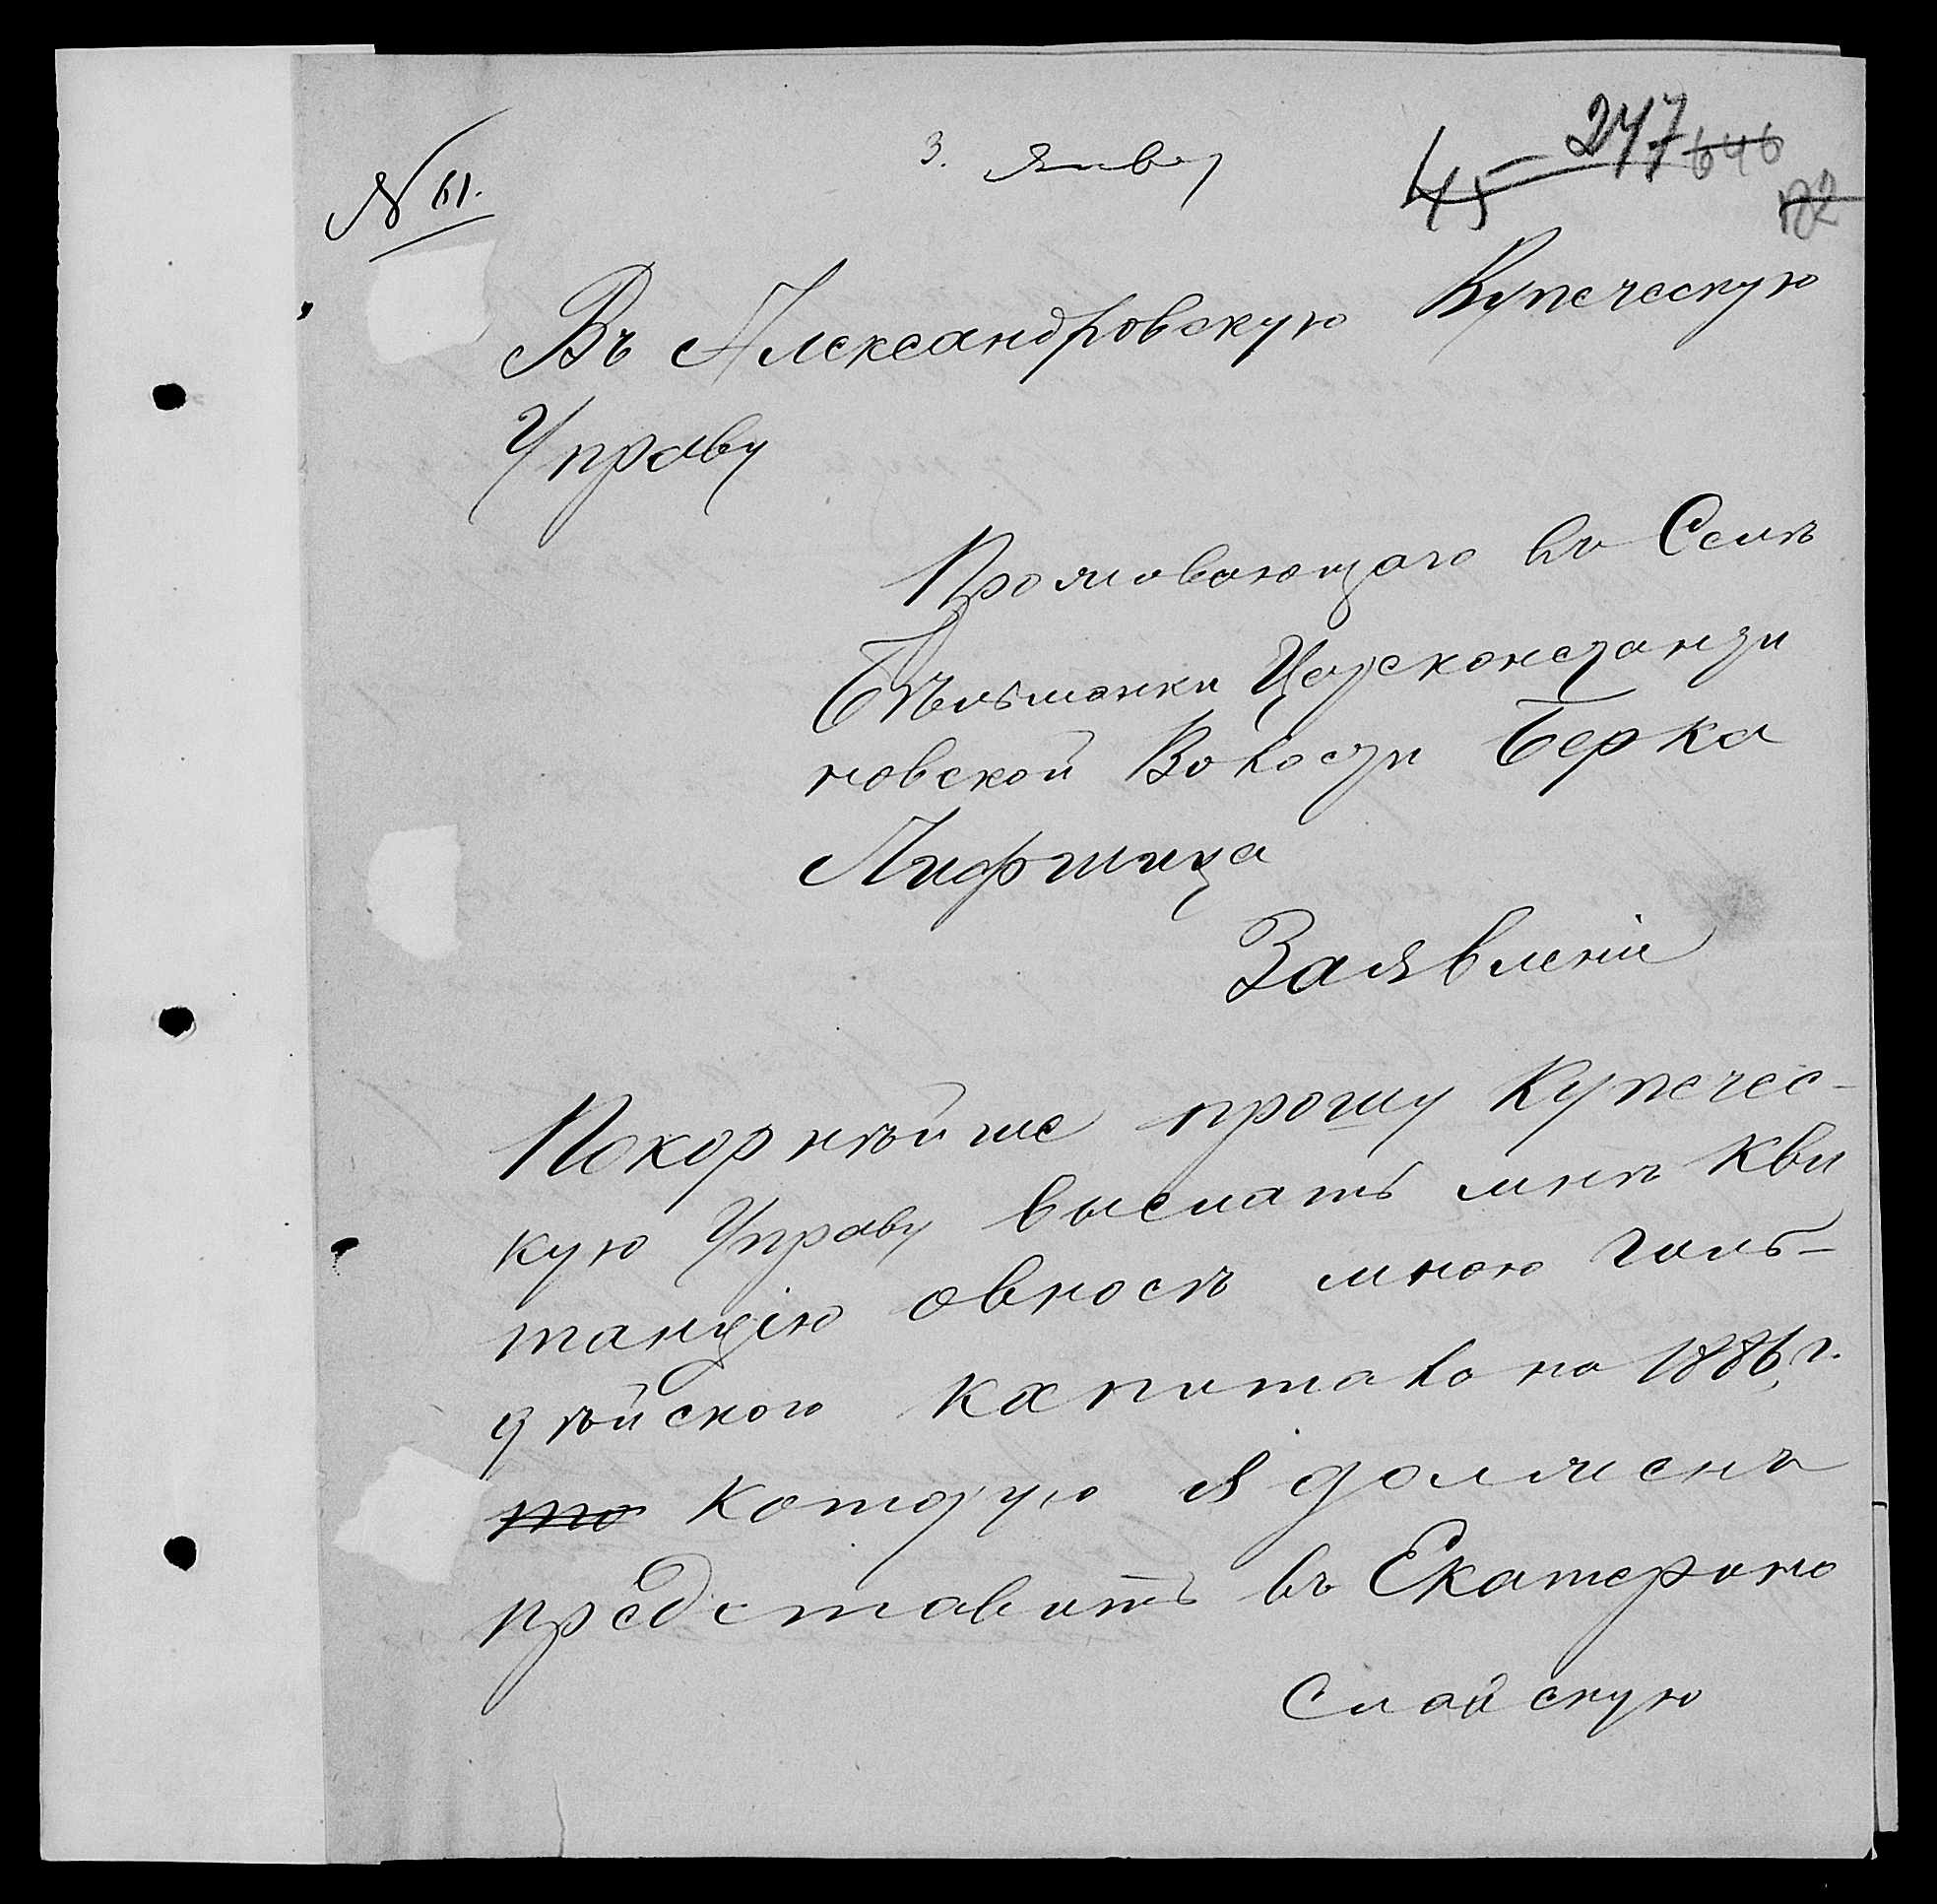 № 61.
3. Янвр
247 646
45
172
Въ Александровскую Купеческую
Управу
Проживающаго въ Селѣ
Бѣльманки Царсконстанти
новской Волости Берка
Лифшица
Заявленіе
Покорнѣйше прошу Купечес-
кую Управу выслать мнѣ кви
танцію овносѣ мною гиль-
дѣйского капитала на 1886 г.
то которую я долженъ
представить въ Екатерино
слайскую